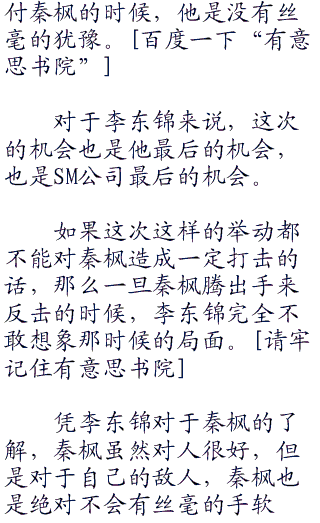 付秦枫的时候，他是没有丝
毫的犹豫。[百度一下“有意
思书院”]
对于李东锦来说，这次
的机会也是他最后的机会，
也是SM公司最后的机会。
如果这次这样的举动都
不能对秦枫造成一定打击的
话，那么一旦秦枫腾出手来
反击的时候，李东锦完全不
敢想象那时候的局面。[请牢
记住有意思书院]
凭李东锦对于秦枫的了
解，秦枫虽然对人很好，但
是对于自己的敌人，秦枫也
是绝对不会有丝毫的手软